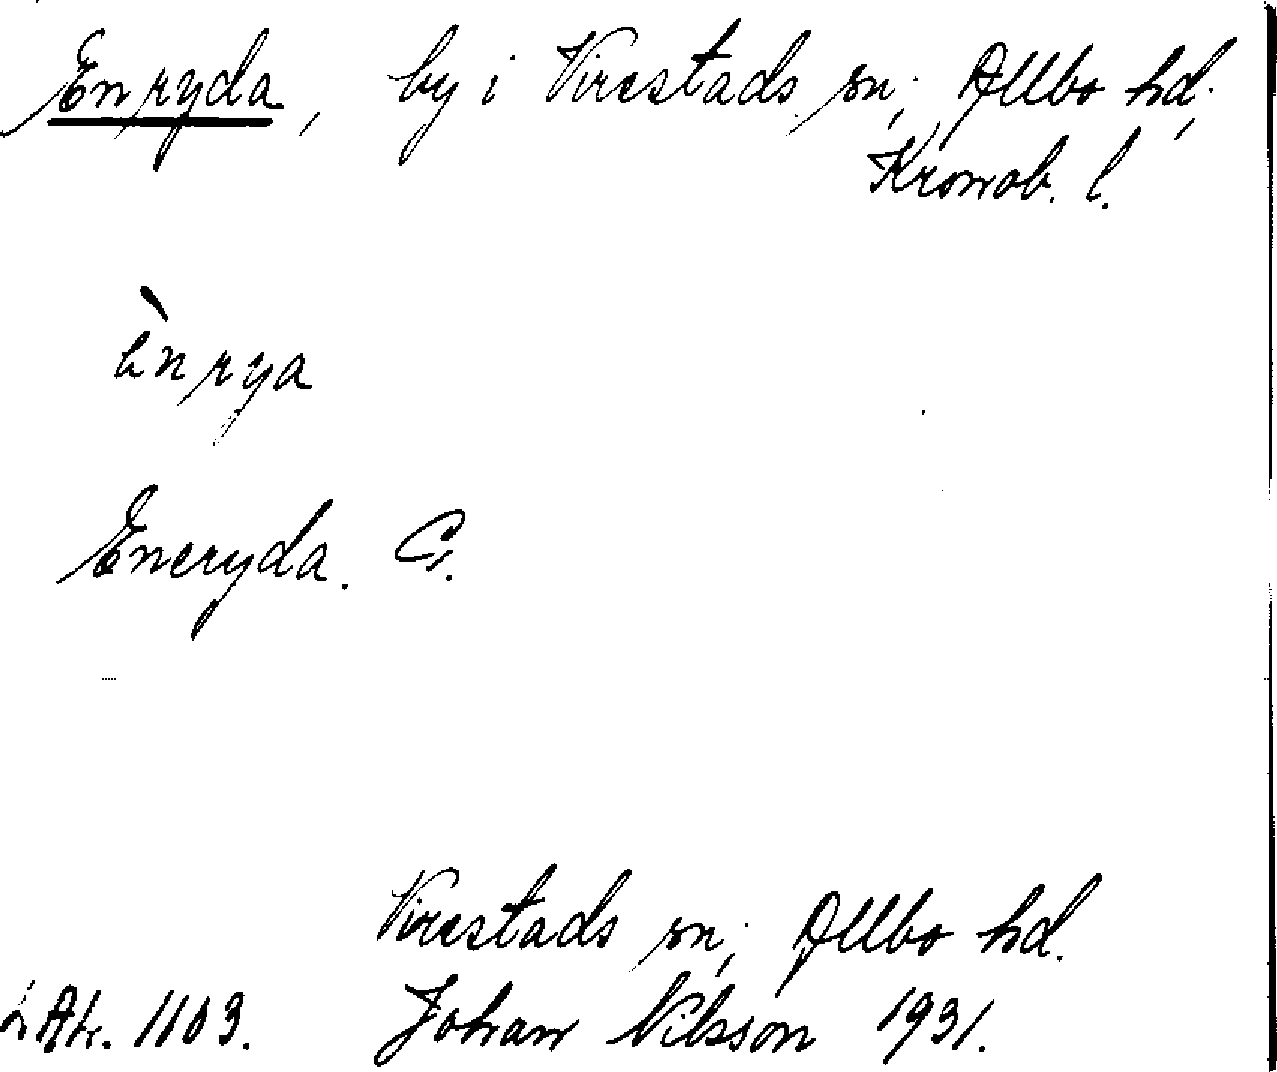 Enryda, by i Virestads sn; Allbo hd;
Kronob. l.
ènrya
Eneryda. G.
Virestads sn; Allbo hd.
Atr. 1103. Johan Nilsson 1931.